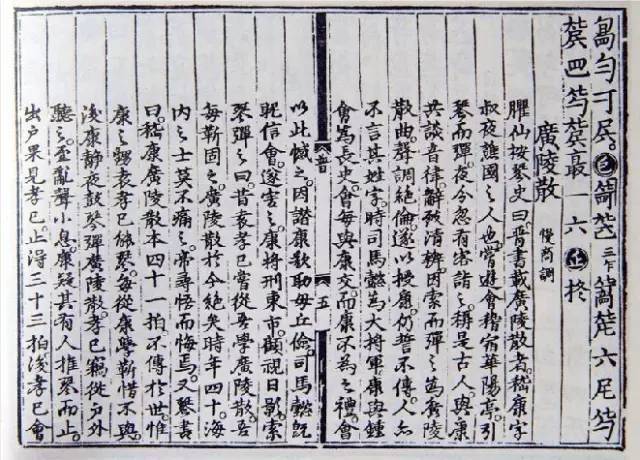 廣陵散 慢商調
臞仙按琴史曰晉書載廣陵散者嵇康字
叔夜譙國之人也嘗遊會稽宿華陽亭引
琴而彈夜今忽有客詣之稱是古人與康
共談音律辭致清辨因索而彈之為廣陵
散曲聲調絕倫遂以授康仍誓不傳人亦
不言其姓字時司馬懿為大將軍康與鍾
會為長史會每與康交而康不為之禮會
五
以此憾之因譖康欲助毋丘儉司馬懿既
昵信會遂害之康將刑東市顧視日影索
琴彈之曰昔袁孝己嘗從吾學廣陵散吾
每靳固之廣陵散於今絕矣時年四十海
內之士莫不痛之帝尋悟而悔焉又琴書
曰嵇康廣陵散本四十一拍不傳於世惟
康之甥袁孝己能琴每從康學靳惜不與
後康靜夜鼓琴彈廣陵散孝己竊從戶外
聽之至亂聲小息康疑其有人推琴而止
出戶果見孝己止得三十三拍後孝己會